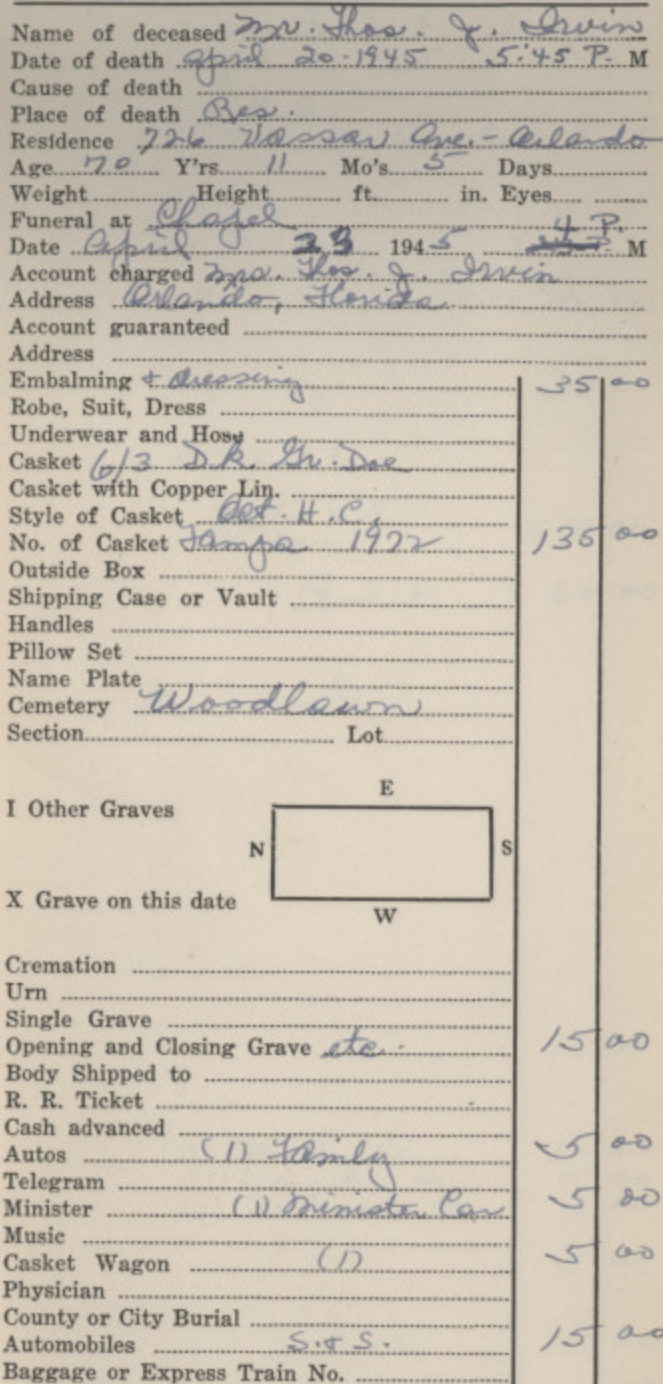 Name of deceased Mr. Thos. J. Irvin
Date of death April 20-1945 5:45 P. M
Cause of death
Place of death Res.
Residence 726 Vassar Ave. - Orlando
Age 70 Y'rs 11 Mo's 5 Days
Weight Height ft. in. Eyes
Funeral at Chapel
Date April 23 1945 4 P. M
Account charged Mrs. Thos. J. Irvin
Address Orlando, Florida
Account guaranteed
Address
Embalming + dressing 35 00
Robe, Suit, Dress
Underwear and Hose
Casket 6/3 Dk. Gr. Doe
Casket with Copper Lin.
Style of Casket Oct. H.C.
No. of Casket Tampa 1922 135 00
Outside Box
Shipping Case or Vault
Handles
Pillow Set
Name Plate
Cemetery Woodlawn
Section Lot
E
I Other Graves
N S
X Grave on this date
W
Cremation
Urn
Single Grave
Opening and Closing Grave etc. 15 00
Body Shipped to
R. R. Ticket
Cash advanced
Autos (1) Family 5 00
Telegram
Minister (1) Minister Car 5 00
Music
Casket Wagon (1) 5 00
Physician
County or City Burial
Automobiles S. & S. 15 00
Baggage or Express Train No.